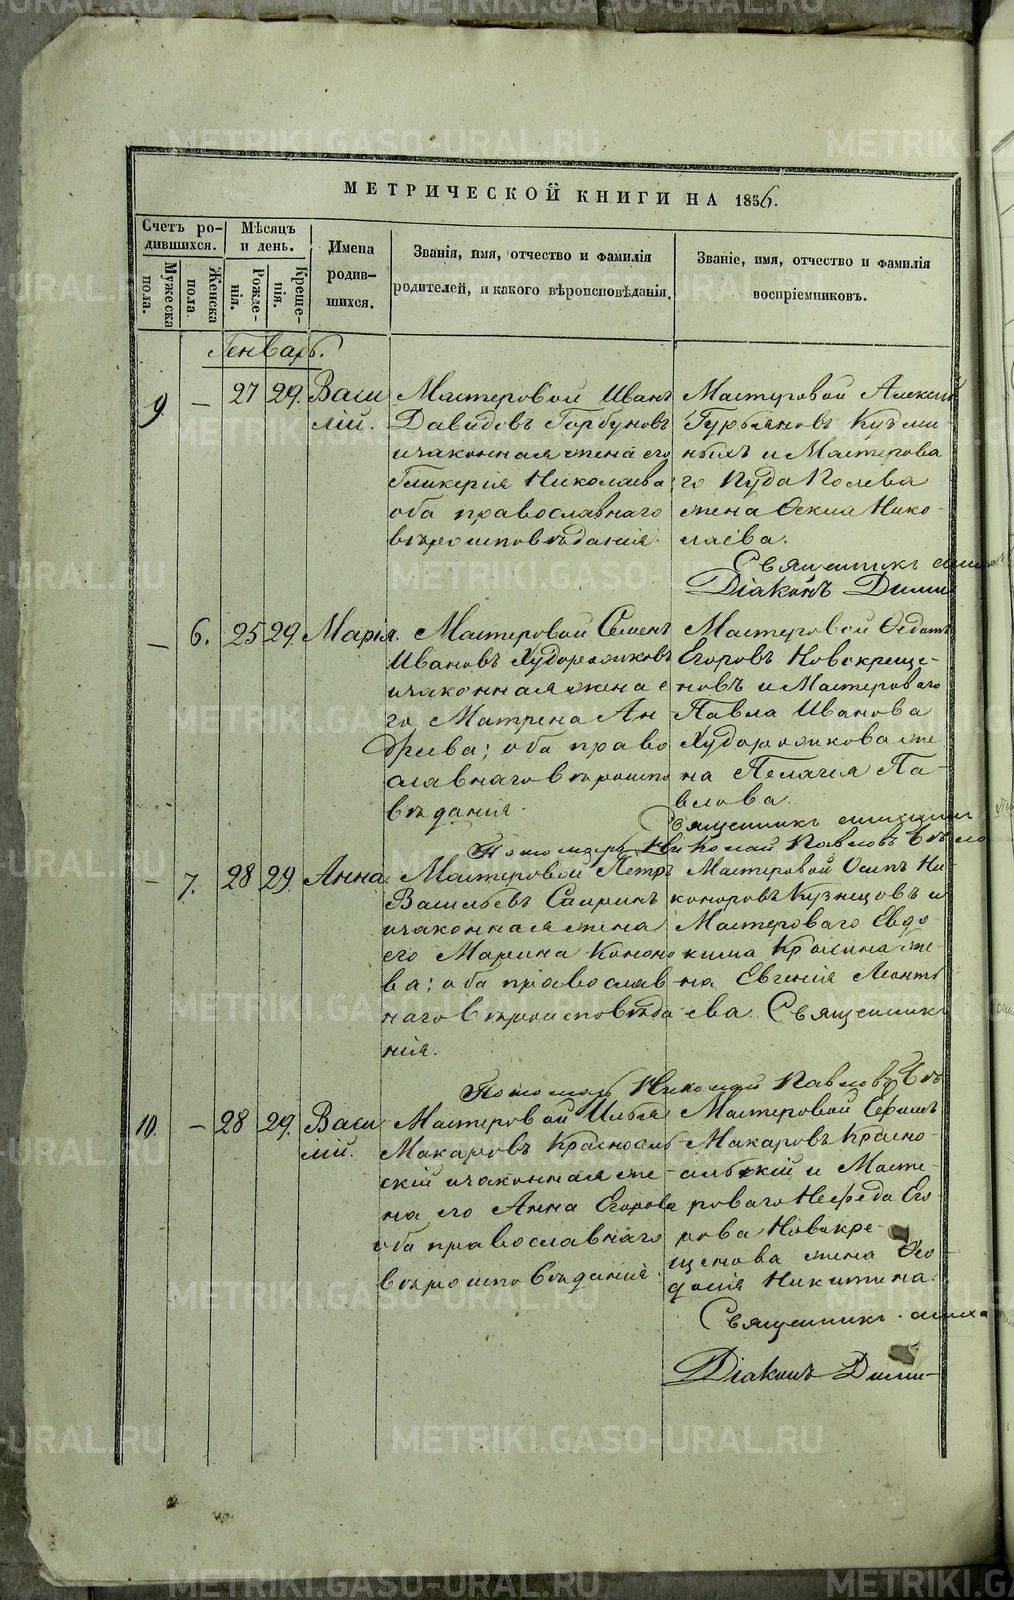 МЕТРИЧЕСКОЙ КНИГИ НА 1856.
Счетъ ро-
дившихся.
Мѣсяцъ
и день.
Мужеска
пола.
Женска
пола
Рожде-
нія.
Креще-
нія.
Имена
родив-
шихся.
Званія, имя, отчество и фамилія
родителей, и какого вѣроисповѣданія.
Званіе, имя, отчество и фамилія
воспріемниковъ.
Генварь.
9. — 27 29. Васи
лій.
Мастеровой Иванъ
Давидовъ Горбуновъ
и законная жена его
Гликерія Николаева;
оба православнаго
вѣроисповѣданія.
Мастеровой Алексѣй
Гурьяновъ Кузми-
ныхъ и Мастерова
го Нуда Полева
жена Нико-
лаева.
Священникъ
Діаконъ Дими
— 6. 25 29. Марія.
Мастеровой Семенъ
Ивановъ Худорожковъ
и законная жена е
го Матрена Ан
дреева; оба право
славнаго вѣроиспо
вѣданія.
Мастеровой Федотъ
Егоровъ Новокреще-
новъ и Мастероваго
Павла Иванова
Худорожкова же
на Пелагія Па-
влова.
Священникъ
Пономарь Николай Павловъ
— 7. 28 29. Анна.
Мастеровой Петръ
Васильевъ Спиринъ
и законная жена
его Марина Конono
ва; оба православ
наго вѣроисповѣда
нія.
Мастеровой Осипъ Ни-
коноровъ Кузнецовъ и
Мастероваго Евдо-
кима же-
на Евгенія Леонть
ева. Священникъ
Пономарь Николай Павловъ
10. — 28 29. Васи
лій.
Мастеровой Илья
Макаровъ Красносель
скій и законная же-
на его Анна Егорова
оба православнаго
вѣроисповѣданія.
Мастеровой Ефимъ
Макаровъ Красно-
сельскій и Масте-
роваго Нефеда Его-
рова Новокре-
щенова жена Фео-
досія Никитина.
Священникъ миха
Діаконъ Дими-
METRIKI.GASO-URAL.RU